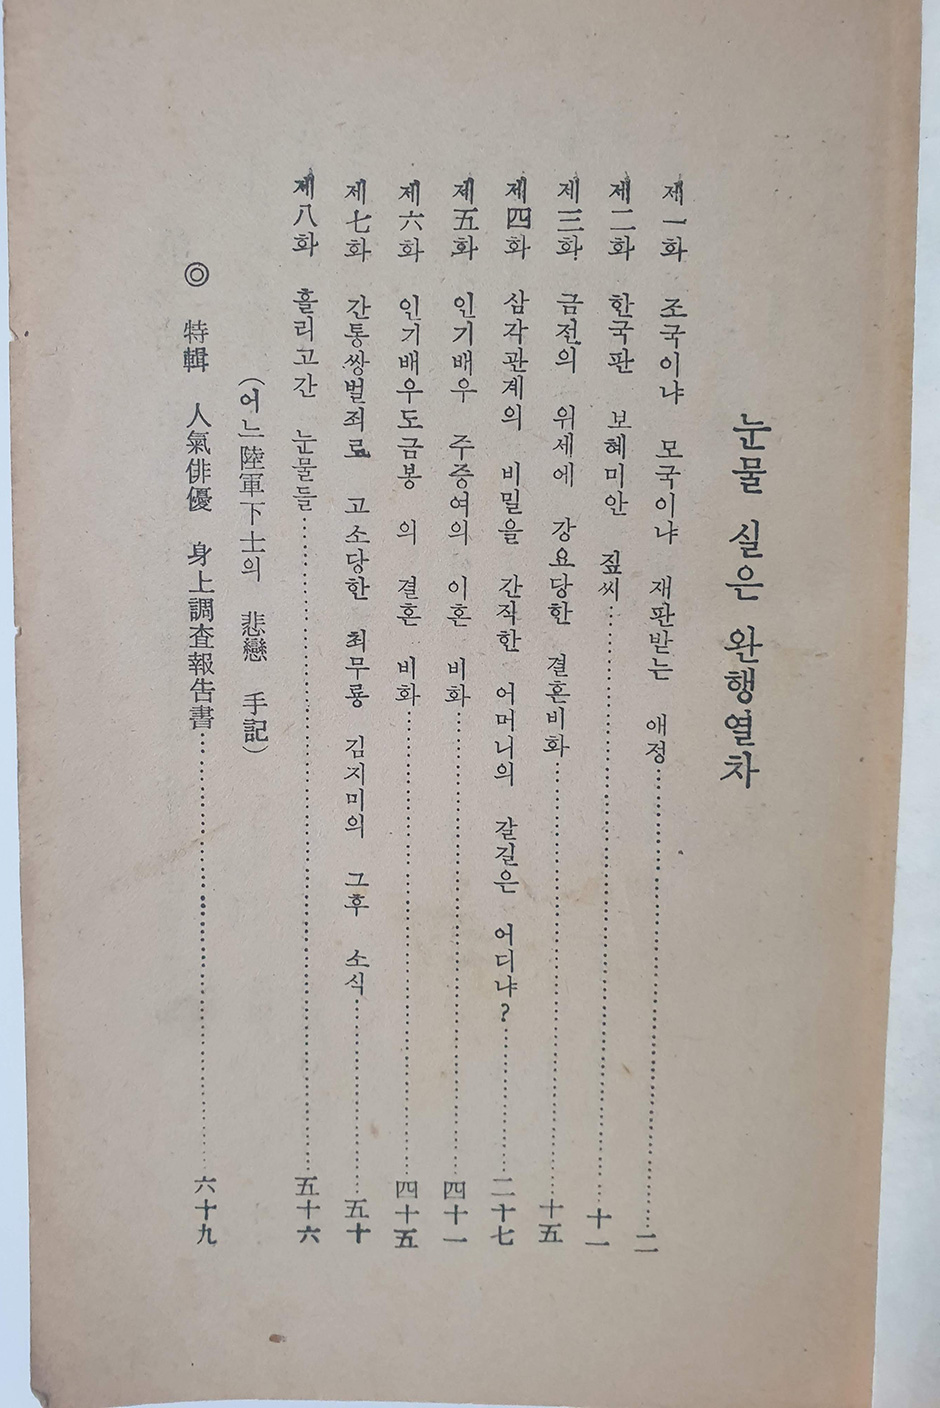 눈물 실은 완행열차
제一화 조국이냐 모국이냐 재판받는 애정……………………………………二
제二화 한국판 보헤미안 짚씨……………………………………十一
제三화 금전의 위세에 강요당한 결혼비화……………………………………十五
제四화 삼각관계의 비밀을 간직한 어머니의 갈길은 어디냐?……………二十七
제五화 인기배우 주증여의 이혼 비화……………………………………四十一
제六화 인기배우도금봉 의 결혼 비화……………………………………四十五
제七화 간통쌍벌죄로 고소당한 최무룡 김지미의 그후 소식……………五十
제八화 흘리고간 눈물들……………………………………五十六
(어느陸軍下士의 悲戀 手記)
◎ 特輯 人氣俳優 身上調査報告書……………………………………六十九